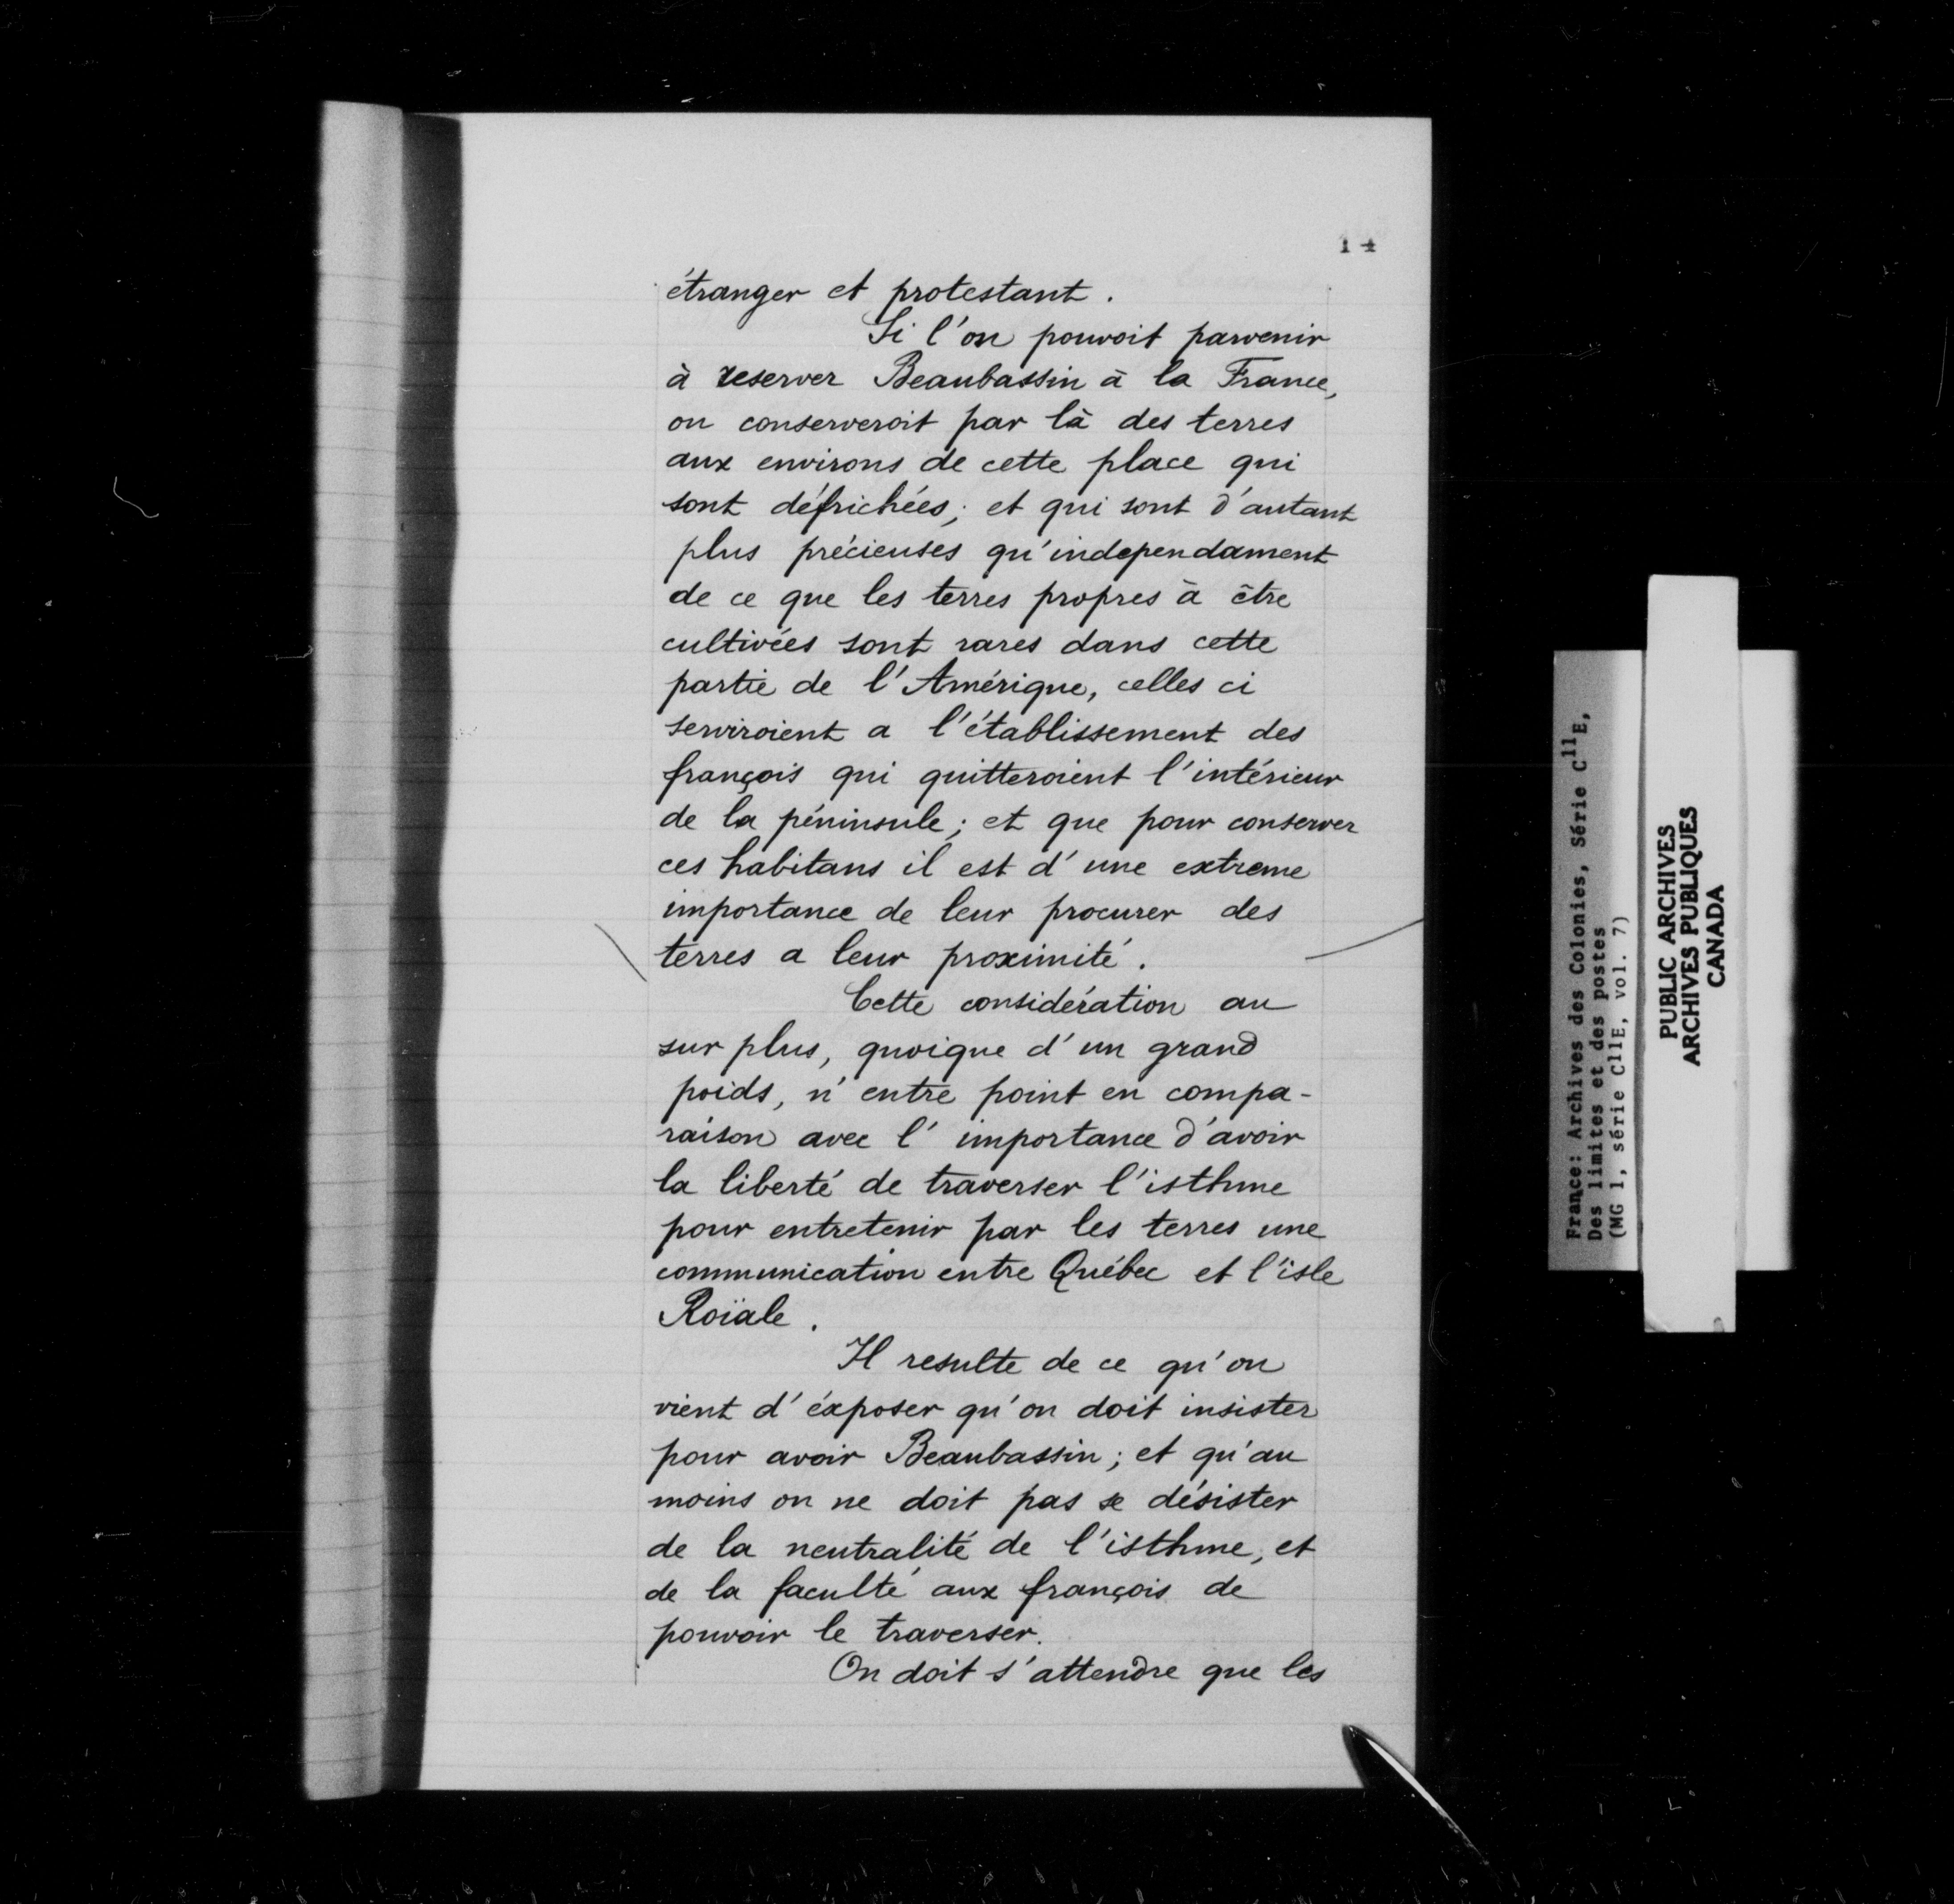 14
étranger et protestant.
Si l'on pouvoit parvenir
à reserver Beaubassin à la France,
on conserveroit par là des terres
aux environs de cette place qui
sont défrichées; et qui sont d'autant
plus précieuses qu'independament
de ce que les terres propres à être
cultivées sont rares dans cette
partie de l'Amérique, celles ci
serviroient a l'établissement des
françois qui quitteroient l'intérieur
de la péninsule; et que pour conserver
ces habitans il est d'une extreme
importance de leur procurer des
terres a leur proximité.
Cette considération au
sur plus, quoique d'un grand
poids, n'entre point en compa-
raison avec l'importance d'avoir
la liberté de traverser l'isthme
pour entretenir par les terres une
communication entre Québec et l'isle
Roïale.
Il resulte de ce qu'on
vient d'éxposer qu'on doit insister
pour avoir Beaubassin; et qu'au
moins on ne doit pas se désister
de la neutralité de l'isthme, et
de la faculté aux françois de
pouvoir le traverser.
On doit s'attendre que les
France: Archives des Colonies, Série C11E,
Des limites et des postes
(MG 1, série C11E, vol. 7)
PUBLIC ARCHIVES
ARCHIVES PUBLIQUES
CANADA